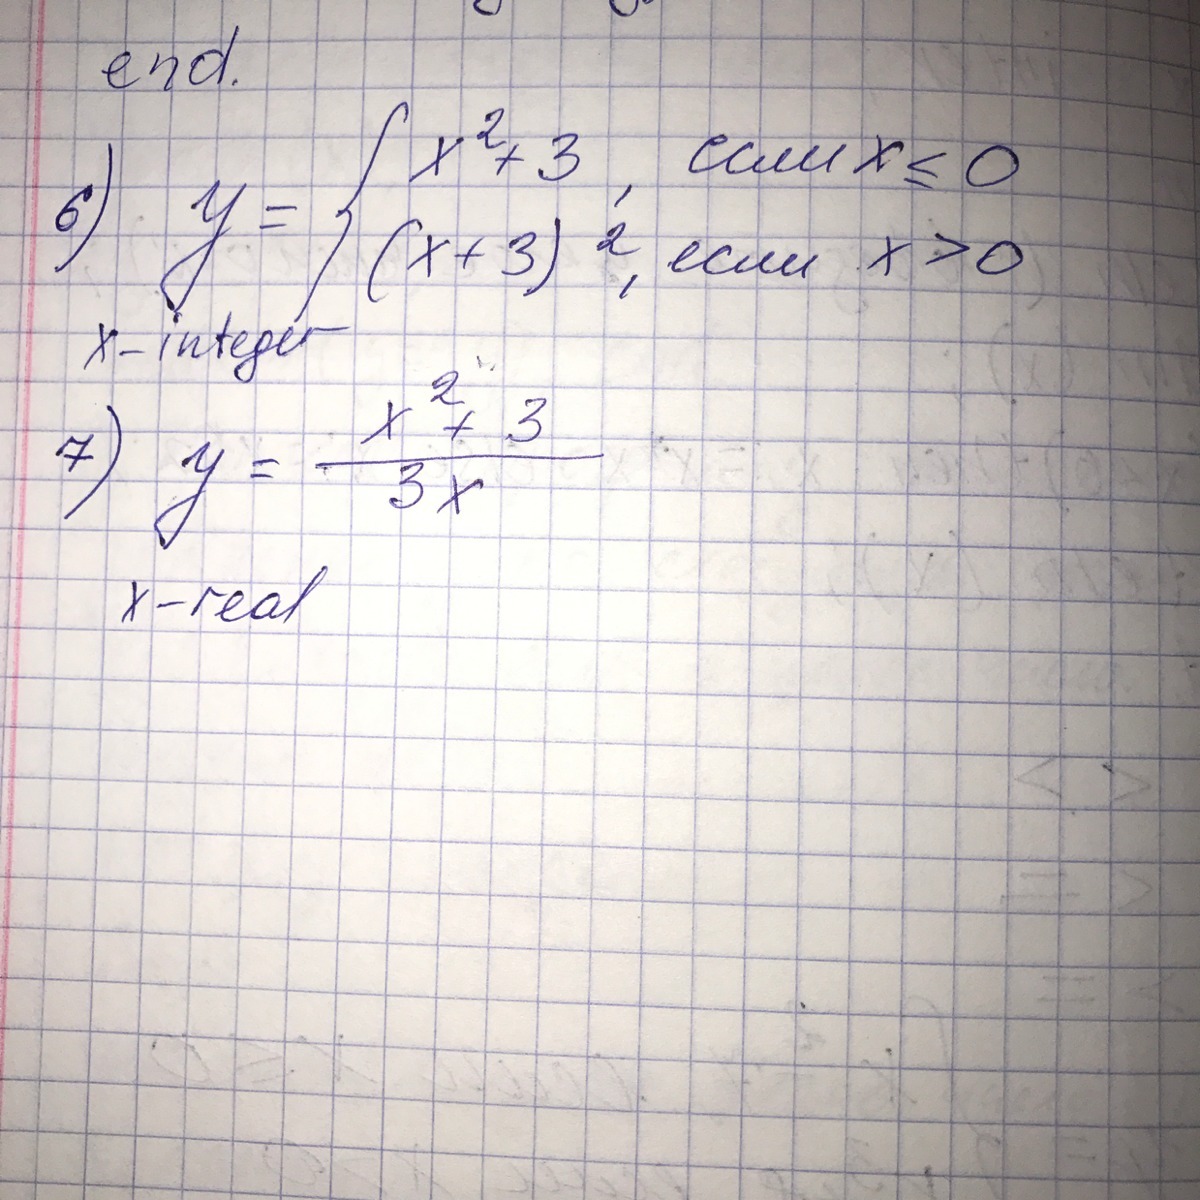 end.
6) y = { x² + 3, если x ≤ 0
(x + 3)², если x > 0
x - integer
7) y = x² + 3
3x
x - real